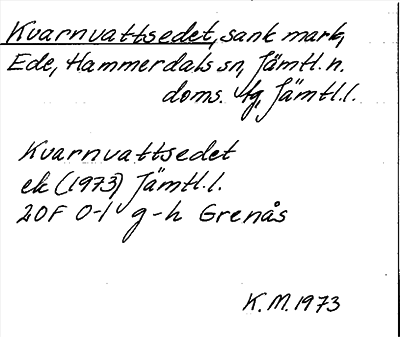 Kvarnvattsedet, sank mark,
Ede, Hammerdals sn, Jämtl. n.
doms. fg, Jämtl.l.
Kvarnvattsedet
ek (1973) Jämtl.l.
20F 0-1 g-h Grenås
K.M. 1973